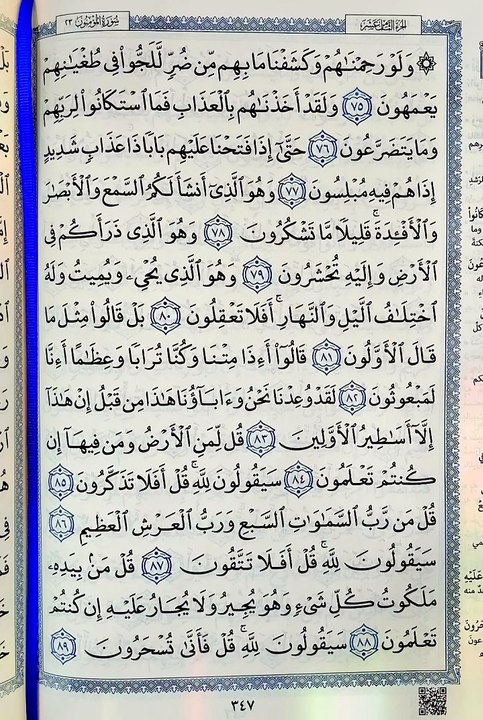 سُورَةُ المُؤْمِنُونَ ٢٣
الجُزءُ الثَّامِنَ عَشَرَ
۞ وَلَوْ رَحِمْنَٰهُمْ وَكَشَفْنَا مَا بِهِم مِّن ضُرٍّ لَّلَجُّوا۟ فِى طُغْيَٰنِهِمْ
يَعْمَهُونَ ٧٥ وَلَقَدْ أَخَذْنَٰهُم بِٱلْعَذَابِ فَمَا ٱسْتَكَانُوا۟ لِرَبِّهِمْ
وَمَا يَتَضَرَّعُونَ ٧٦ حَتَّىٰٓ إِذَا فَتَحْنَا عَلَيْهِم بَابًا ذَا عَذَابٍ شَدِيدٍ
إِذَا هُمْ فِيهِ مُبْلِسُونَ ٧٧ وَهُوَ ٱلَّذِىٓ أَنشَأَ لَكُمُ ٱلسَّمْعَ وَٱلْأَبْصَٰرَ
وَٱلْأَفْـِٔدَةَ ۚ قَلِيلًا مَّا تَشْكُرُونَ ٧٨ وَهُوَ ٱلَّذِى ذَرَأَكُمْ فِى
ٱلْأَرْضِ وَإِلَيْهِ تُحْشَرُونَ ٧٩ وَهُوَ ٱلَّذِى يُحْىِۦ وَيُمِيتُ وَلَهُ
ٱخْتِلَٰفُ ٱلَّيْلِ وَٱلنَّهَارِ ۚ أَفَلَا تَعْقِلُونَ ٨٠ بَلْ قَالُوا۟ مِثْلَ مَا
قَالَ ٱلْأَوَّلُونَ ٨١ قَالُوٓا۟ أَءِذَا مِتْنَا وَكُنَّا تُرَابًا وَعِظَٰمًا أَءِنَّا
لَمَبْعُوثُونَ ٨٢ لَقَدْ وُعِدْنَا نَحْنُ وَءَابَآؤُنَا هَٰذَا مِن قَبْلُ إِنْ هَٰذَآ
إِلَّآ أَسَٰطِيرُ ٱلْأَوَّلِينَ ٨٣ قُل لِّمَنِ ٱلْأَرْضُ وَمَن فِيهَآ إِن
كُنتُمْ تَعْلَمُونَ ٨٤ سَيَقُولُونَ لِلَّهِ ۚ قُلْ أَفَلَا تَذَكَّرُونَ ٨٥
قُلْ مَن رَّبُّ ٱلسَّمَٰوَٰتِ ٱلسَّبْعِ وَرَبُّ ٱلْعَرْشِ ٱلْعَظِيمِ ٨٦
سَيَقُولُونَ لِلَّهِ ۚ قُلْ أَفَلَا تَتَّقُونَ ٨٧ قُلْ مَنۢ بِيَدِهِۦ
مَلَكُوتُ كُلِّ شَىْءٍ وَهُوَ يُجِيرُ وَلَا يُجَارُ عَلَيْهِ إِن كُنتُمْ
تَعْلَمُونَ ٨٨ سَيَقُولُونَ لِلَّهِ ۚ قُلْ فَأَنَّىٰ تُسْحَرُونَ ٨٩
٣٤٧